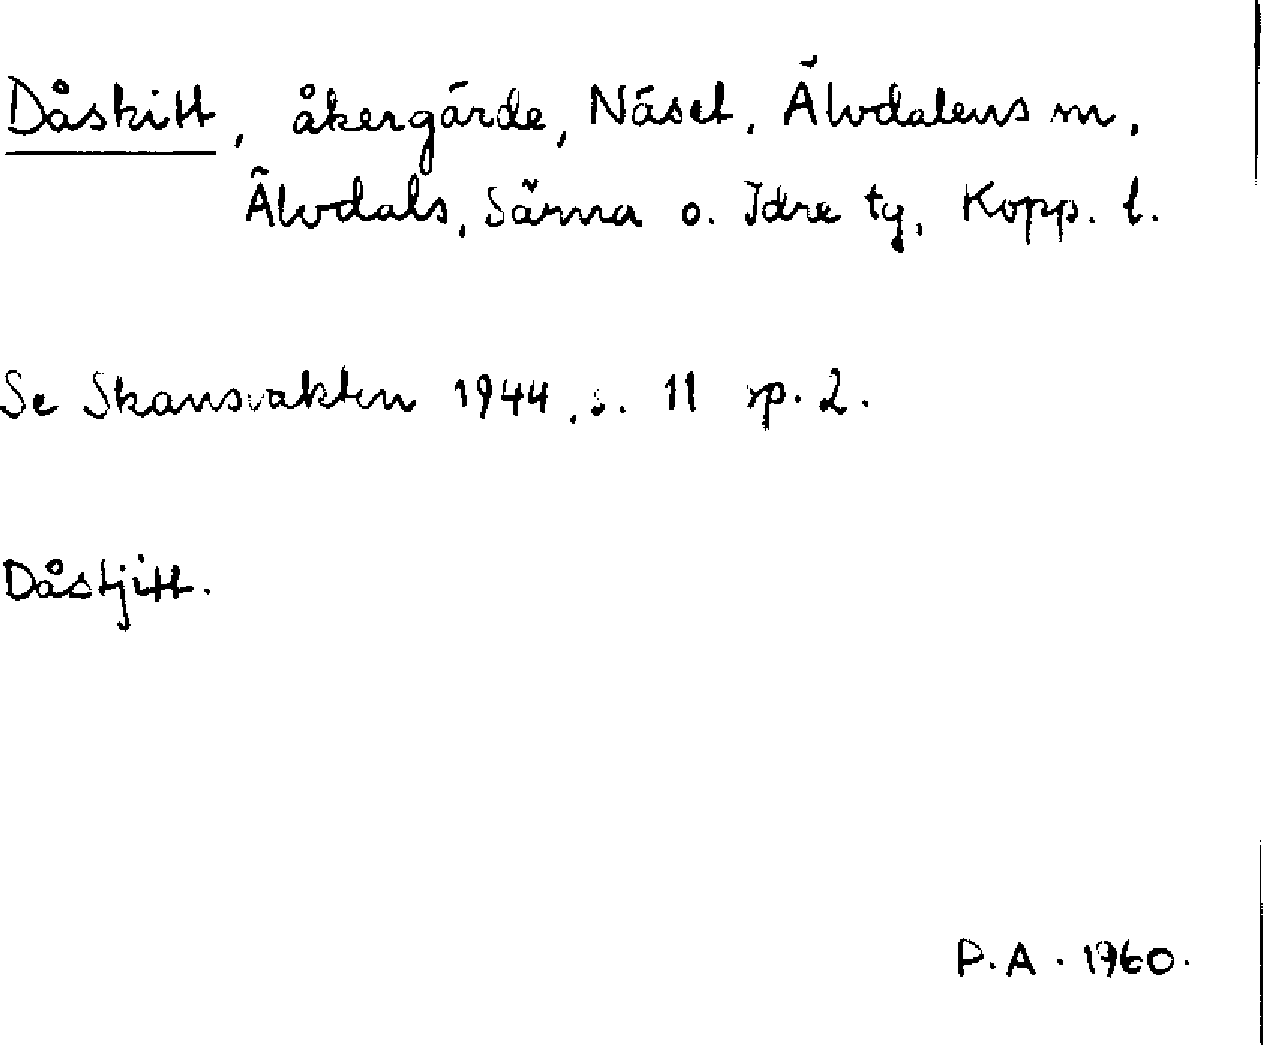 Dåskitt, åkergärde, Näset, Älvdalens m,
Älvdals, Särna o. Idre tg, Kopp. l.
Se Skansvakten 1944, s. 11 sp. 2.
Dåstjitt.
P.A. 1960.